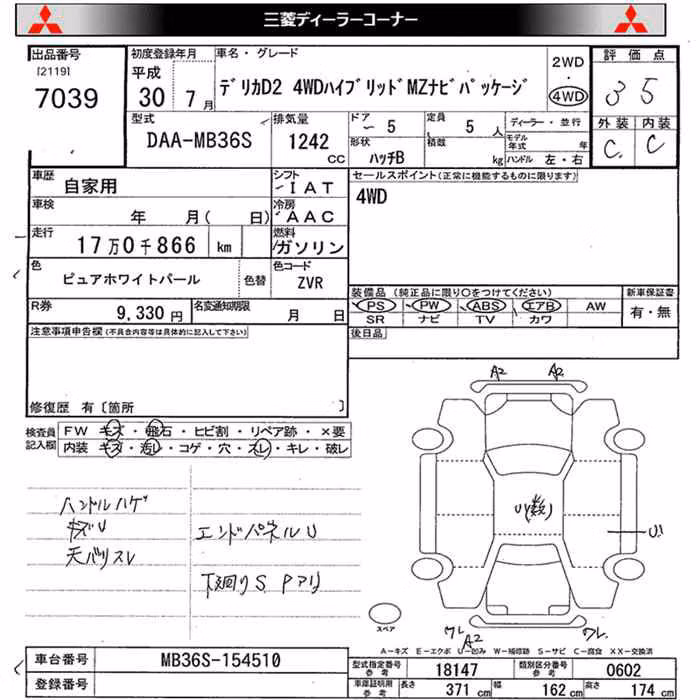 三菱ディーラーコーナー
出品番号
[2119]
7039
初度登録年月
平成
30 年 7 月
車名・グレード
デリカD2 4WDハイブリッドMZナビパッケージ
2WD
・
4WD
評価点
3 5
外装 内装
C C
型式
DAA-MB36S
排気量
1242
CC
ドア
5
形状
ハッチB
定員
5 人
積数
kg
ディーラー・並行
モデル年式 年
ハンドル 左・右
車歴
自家用
シフト
IAT
セールスポイント(正常に機能するものに限ります)
4WD
車検
年 月( 日)
冷房
AAC
走行
17万0千866 km
燃料
ガソリン
色
ピュアホワイトパール
色替
色コード
ZVR
装備品 (純正品に限り○をつけてください)
新車保証書
PS PW ABS エアB AW
SR ナビ TV カワ
有・無
R券
9,330 円
名変通知期限
月 日
後日品
注意事項申告欄(不具合内容等は具体的に記入して下さい)
修復歴 有〔箇所 〕
検査員記入欄
FW キズ・飛石・ヒビ割・リペア跡・×要
内装 キズ・汚レ・コゲ・穴・スレ・キレ・破レ
A2 A2
ハンドルハゲ
キズU
天バリスレ
エンドパネルU
下廻りS Pアリ
U(数)
U1
スペア
ワレ A2 ワレ
A-キズ E-エクボ U-凹み W-補修跡 S-サビ C-腐食 XX-交換済
車台番号
MB36S-154510
登録番号
型式指定番号
参考
18147
類別区分番号
参考
0602
車庫証明用
参考
長さ 371 cm
幅 162 cm
高さ 174 cm